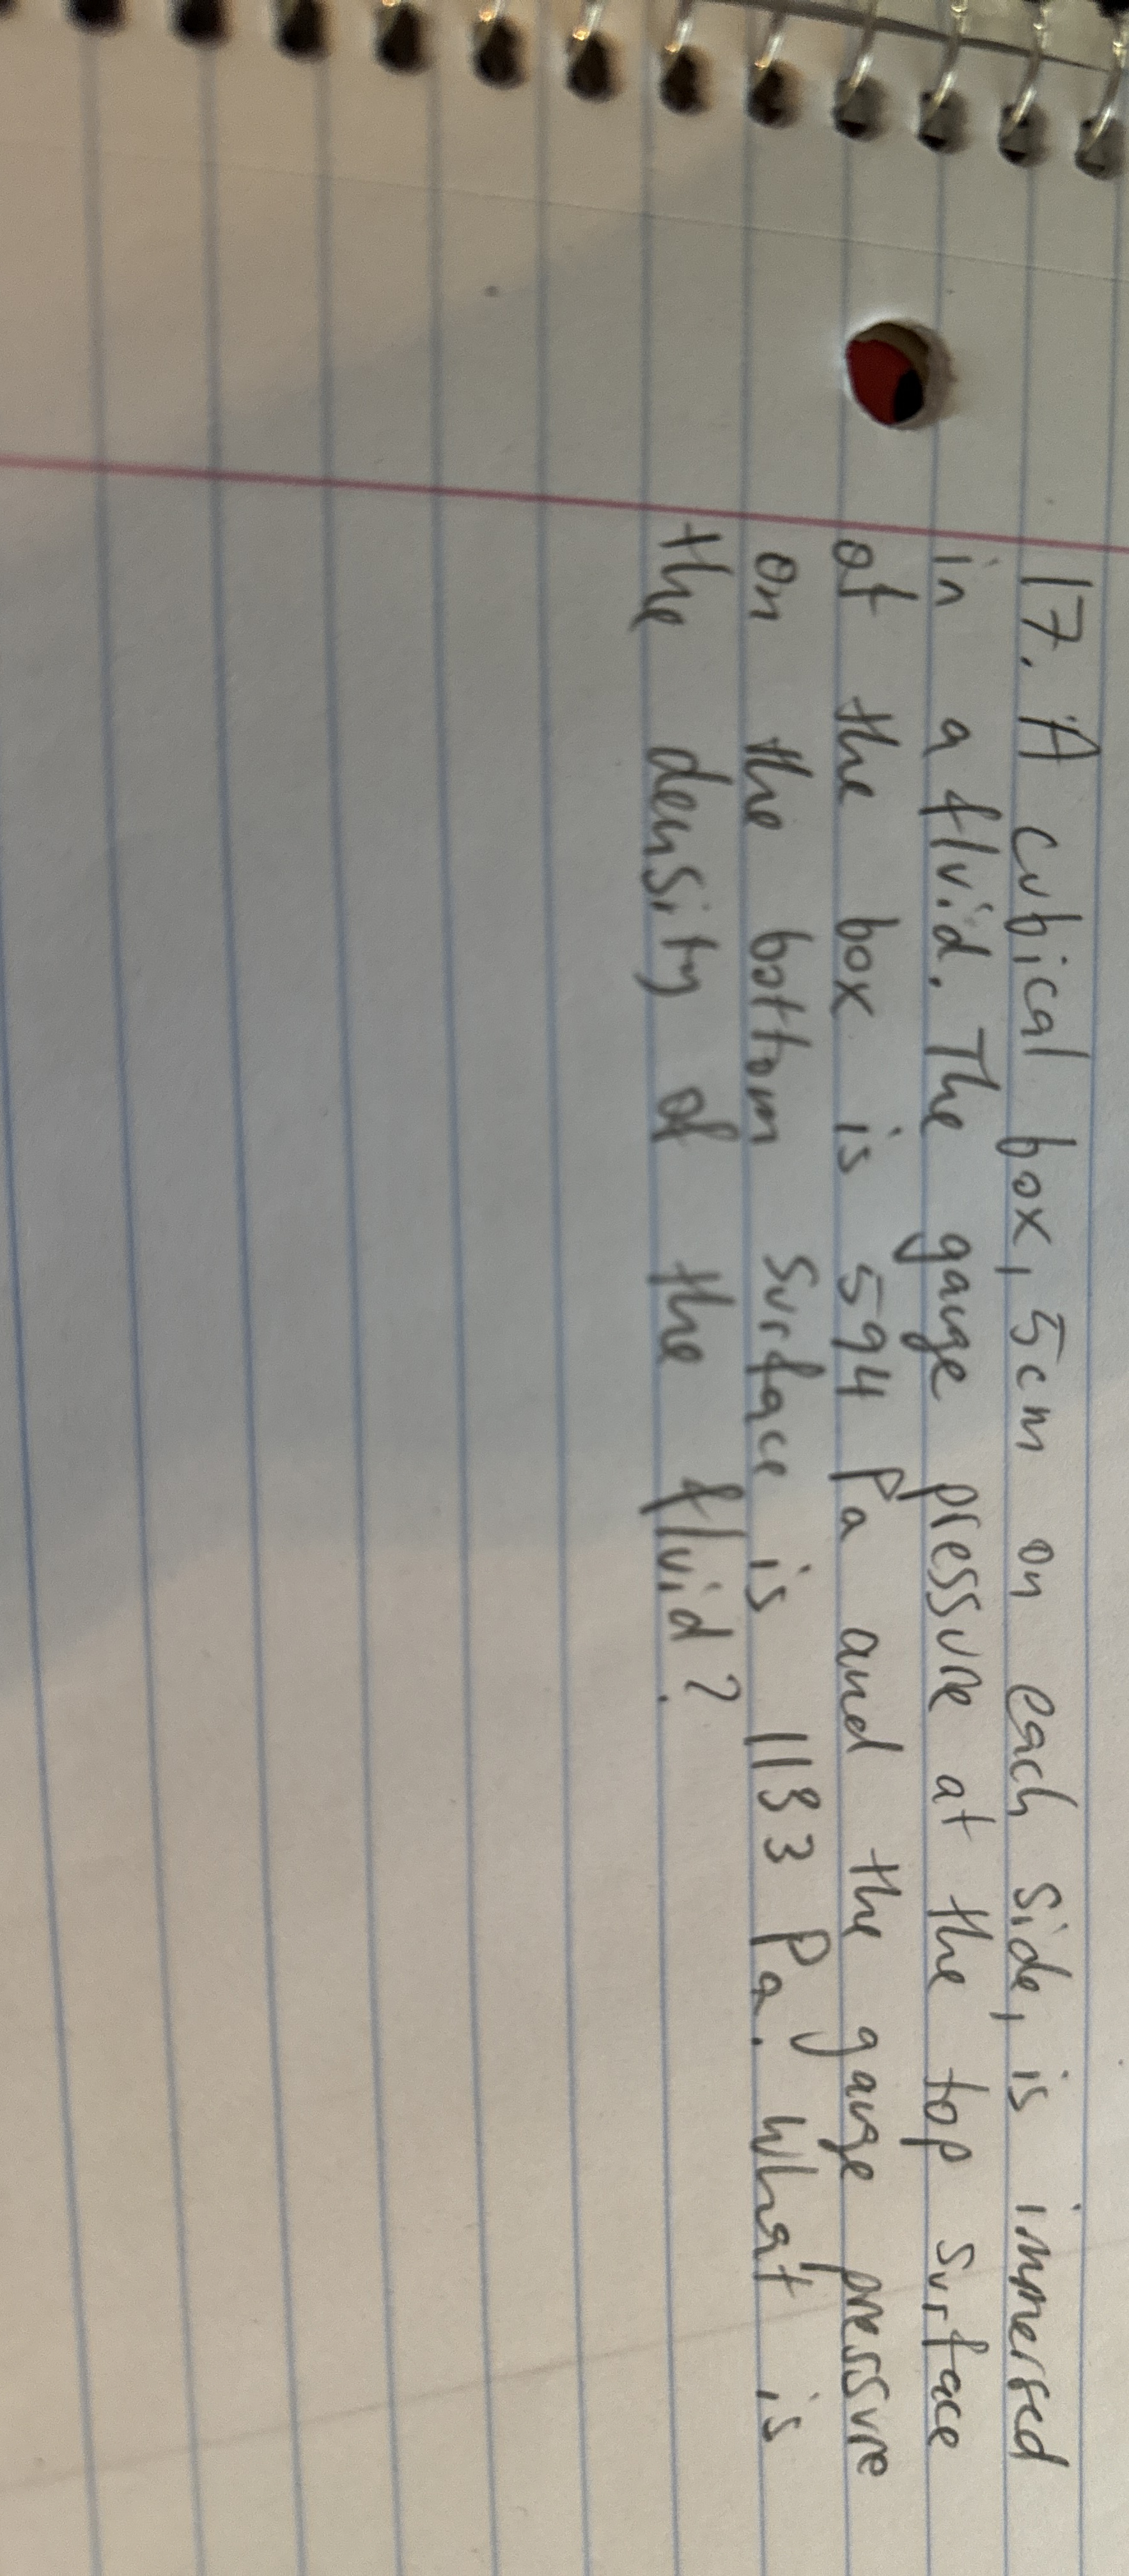 17. A cubical box, 5cm on each side, is immersed
in a fluid. The gauge pressure at the top surface
of the box is 594 Pa and the gauge pressure
on the bottom surface is 1133 Pa. What is
the density of the fluid?